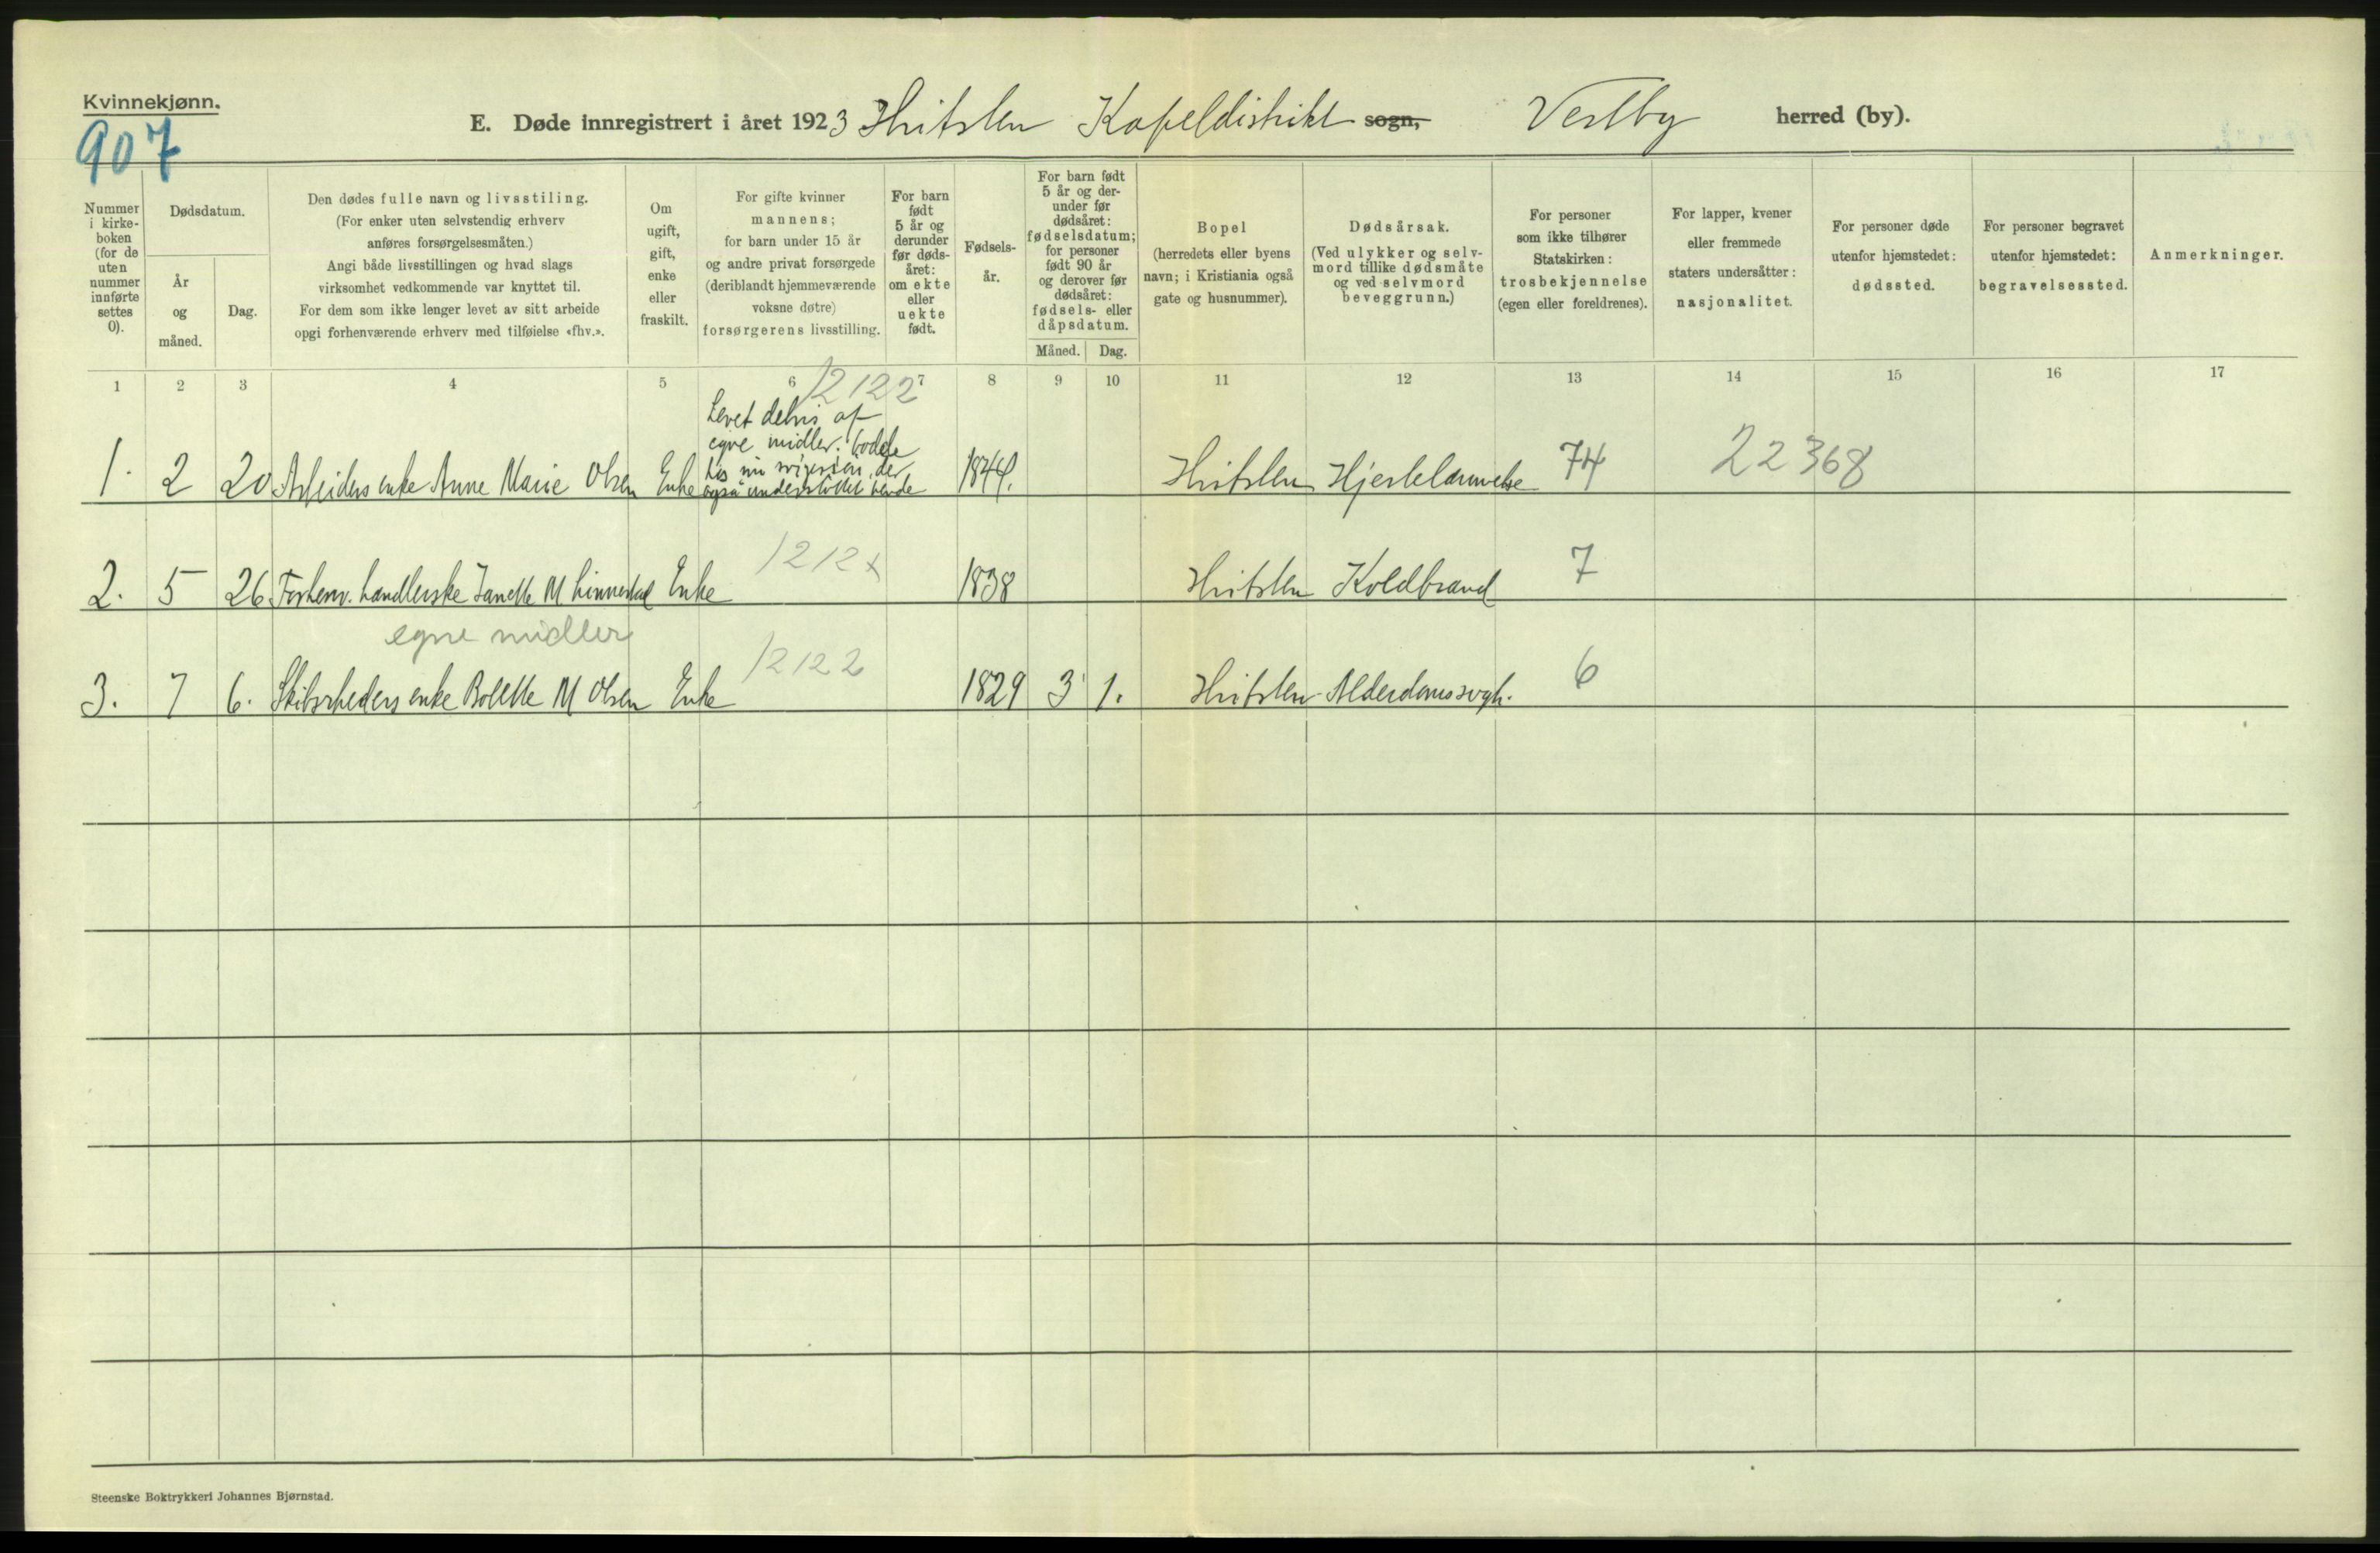 Kvinnekjønn.
907
E. Døde innregistrert i året 1923 Hvitsten Kapeldistrikt sogn, Vestby herred (by).
Nummer i kirkeboken (for de uten nummer innførte settes 0).
Dødsdatum.
År og måned.
Dag.
Den dødes fulle navn og livsstiling.
(For enker uten selvstendig erhverv
anføres forsørgelsesmåten.)
Angi både livsstillingen og hvad slags
virksomhet vedkommende var knyttet til.
For dem som ikke lenger levet av sitt arbeide
opgi forhenværende erhverv med tilføielse «fhv.».
Om ugift, gift, enke eller fraskilt.
For gifte kvinner
mannens;
for barn under 15 år
og andre privat forsørgede
(deriblandt hjemmeværende
voksne døtre)
forsørgerens livsstilling.
For barn født 5 år og derunder før dødsåret: om ekte eller uekte født.
Fødselsår.
For barn født 5 år og derunder før dødsåret: fødselsdatum; for personer født 90 år og derover før dødsåret: fødsels- eller dåpsdatum.
Måned.
Dag.
Bopel
(herredets eller byens
navn; i Kristiania også
gate og husnummer).
Dødsårsak.
(Ved ulykker og selvmord tillike dødsmåte og ved selvmord beveggrunn.)
For personer
som ikke tilhører
Statskirken:
trosbekjennelse
(egen eller foreldrenes).
For lapper, kvener
eller fremmede
staters undersåtter:
nasjonalitet.
For personer døde
utenfor hjemstedet:
dødssted.
For personer begravet
utenfor hjemstedet:
begravelsessted.
Anmerkninger.
1 2 3 4 5 6 7 8 9 10 11 12 13 14 15 16 17
12122
Levet delvis af
egne midler. bodde
hos sin svigersøn, der
også understøttet hende
1. 2 20 Arbeiders enke Anne Marie Olsen Enke 1844. Hvitsten Hjertelammelse 74 22368
2. 5 26 Forhenv. handlerske Janette M Enke 1212x 1838 Hvitsten Koldbrand 7
egne midler
3. 7 6. Skibsrheders enke Bolette M Olsen Enke 12122 1829 3 1. Hvitsten Alderdomssvgh. 6
Steenske Boktrykkeri Johannes Bjørnstad.